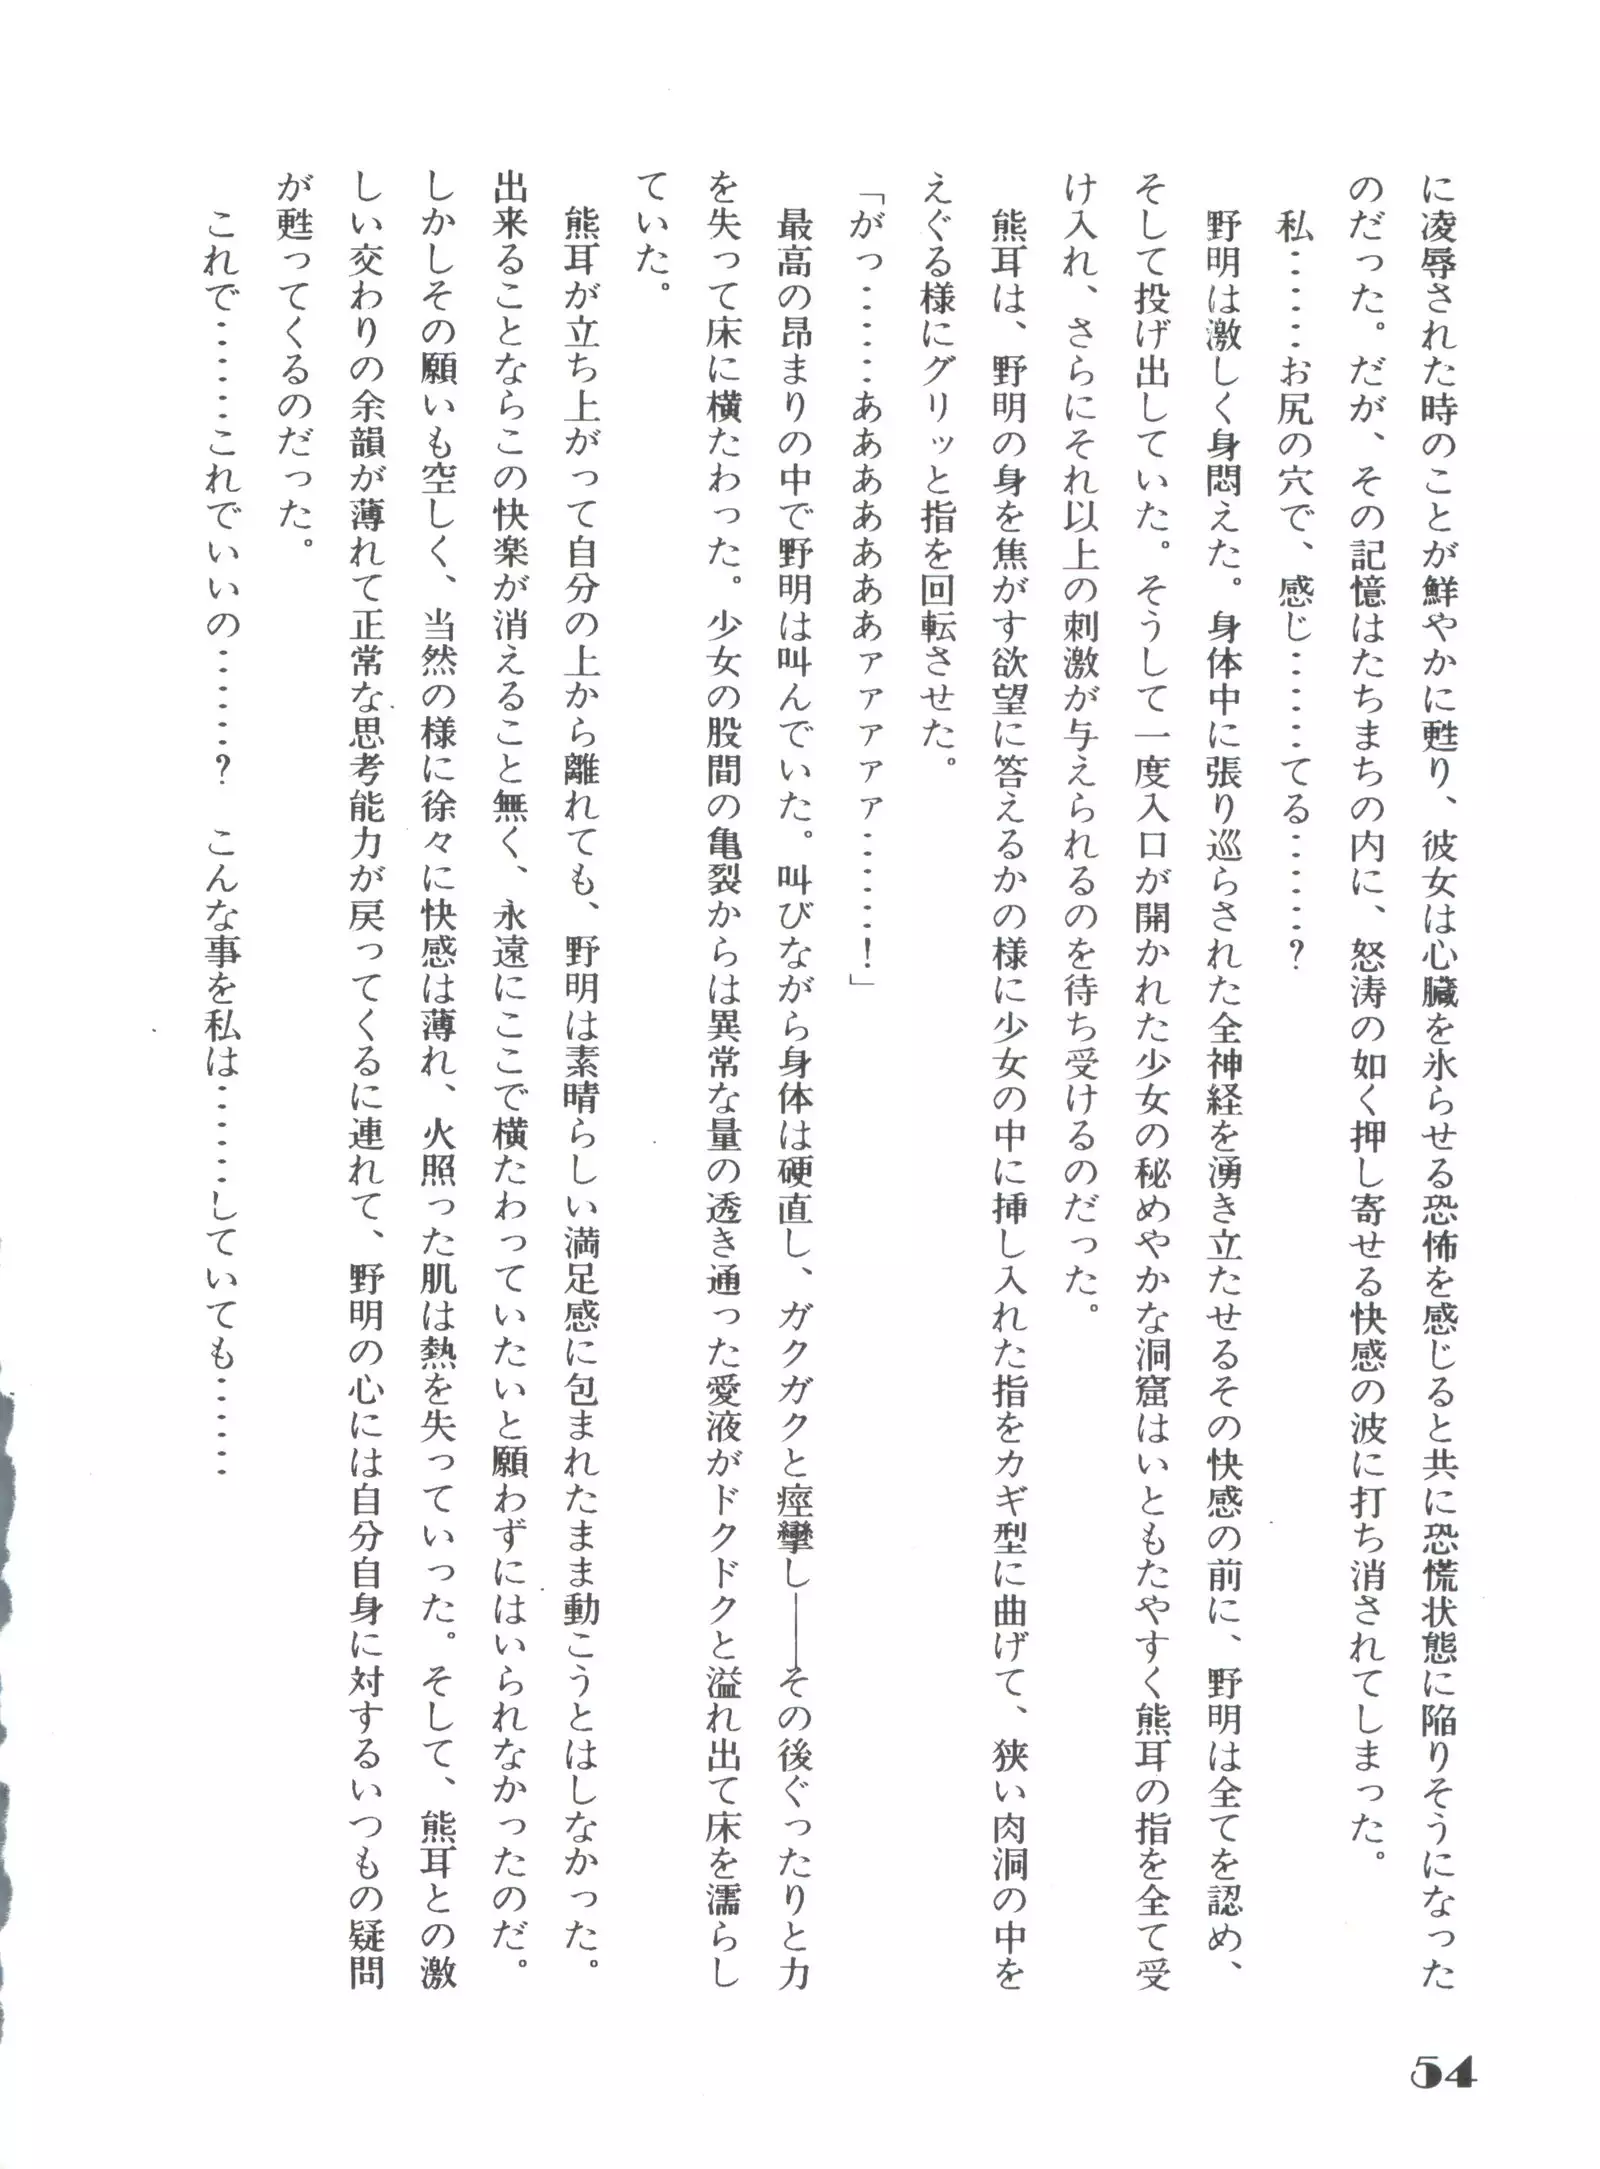 に凌辱された時のことが鮮やかに甦り、彼女は心臓を氷らせる恐怖を感じると共に恐慌状態に陥りそうになった
のだった。だが、その記憶はたちまちの内に、怒涛の如く押し寄せる快感の波に打ち消されてしまった。
　私………お尻の穴で、感じ………てる………？
　野明は激しく身悶えた。身体中に張り巡らされた全神経を湧き立たせるその快感の前に、野明は全てを認め、
そして投げ出していた。そうして一度入口が開かれた少女の秘めやかな洞窟はいともたやすく熊耳の指を全て受
け入れ、さらにそれ以上の刺激が与えられるのを待ち受けるのだった。
　熊耳は、野明の身を焦がす欲望に答えるかの様に少女の中に挿し入れた指をカギ型に曲げて、狭い肉洞の中を
えぐる様にグリッと指を回転させた。
「がっ………あああああああァァァァァ………！」
　最高の昂まりの中で野明は叫んでいた。叫びながら身体は硬直し、ガクガクと痙攣し――その後ぐったりと力
を失って床に横たわった。少女の股間の亀裂からは異常な量の透き通った愛液がドクドクと溢れ出て床を濡らし
ていた。
　熊耳が立ち上がって自分の上から離れても、野明は素晴らしい満足感に包まれたまま動こうとはしなかった。
出来ることならこの快楽が消えること無く、永遠にここで横たわっていたいと願わずにはいられなかったのだ。
しかしその願いも空しく、当然の様に徐々に快感は薄れ、火照った肌は熱を失っていった。そして、熊耳との激
しい交わりの余韻が薄れて正常な思考能力が戻ってくるに連れて、野明の心には自分自身に対するいつもの疑問
が甦ってくるのだった。
　これで………これでいいの………？　こんな事を私は………していても……
54